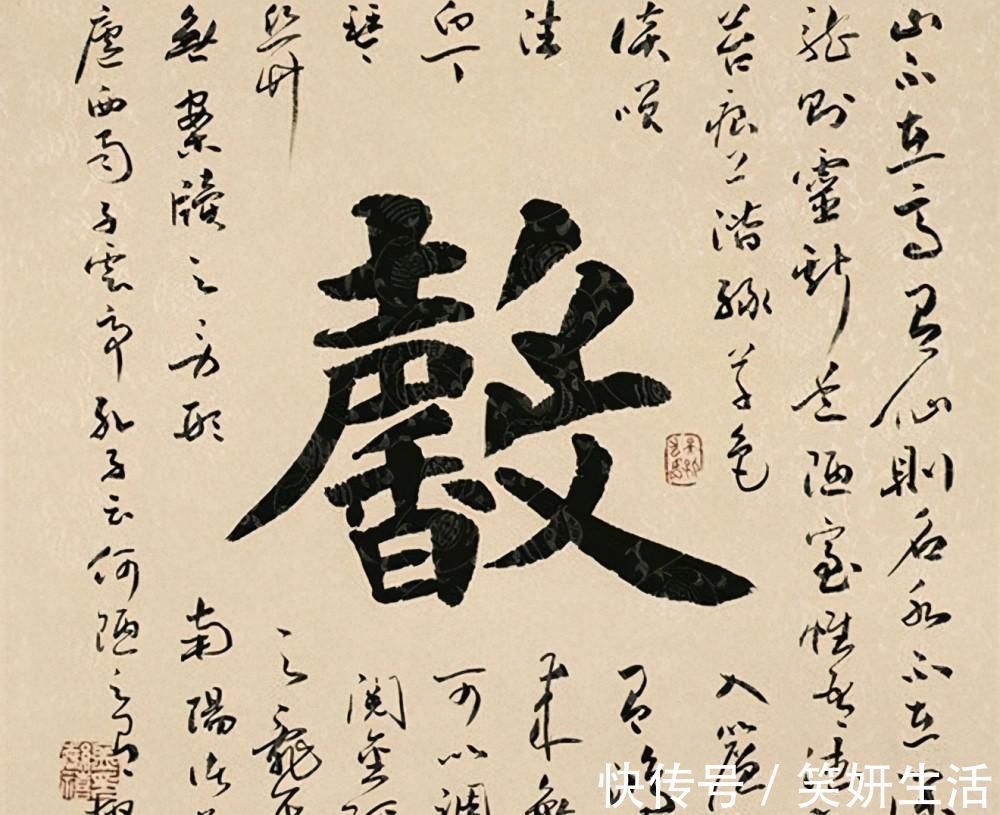 山不在高有仙則名水不在深
龍則靈斯是陋室惟吾德
苔痕上階綠草色入簾
談笑有鴻
往來無
白丁可以調
琴閱金
絲竹之亂耳
無案牘之勞形南陽諸
廬西蜀子雲亭孔子云何陋之有
快传号 / 笑妍生活